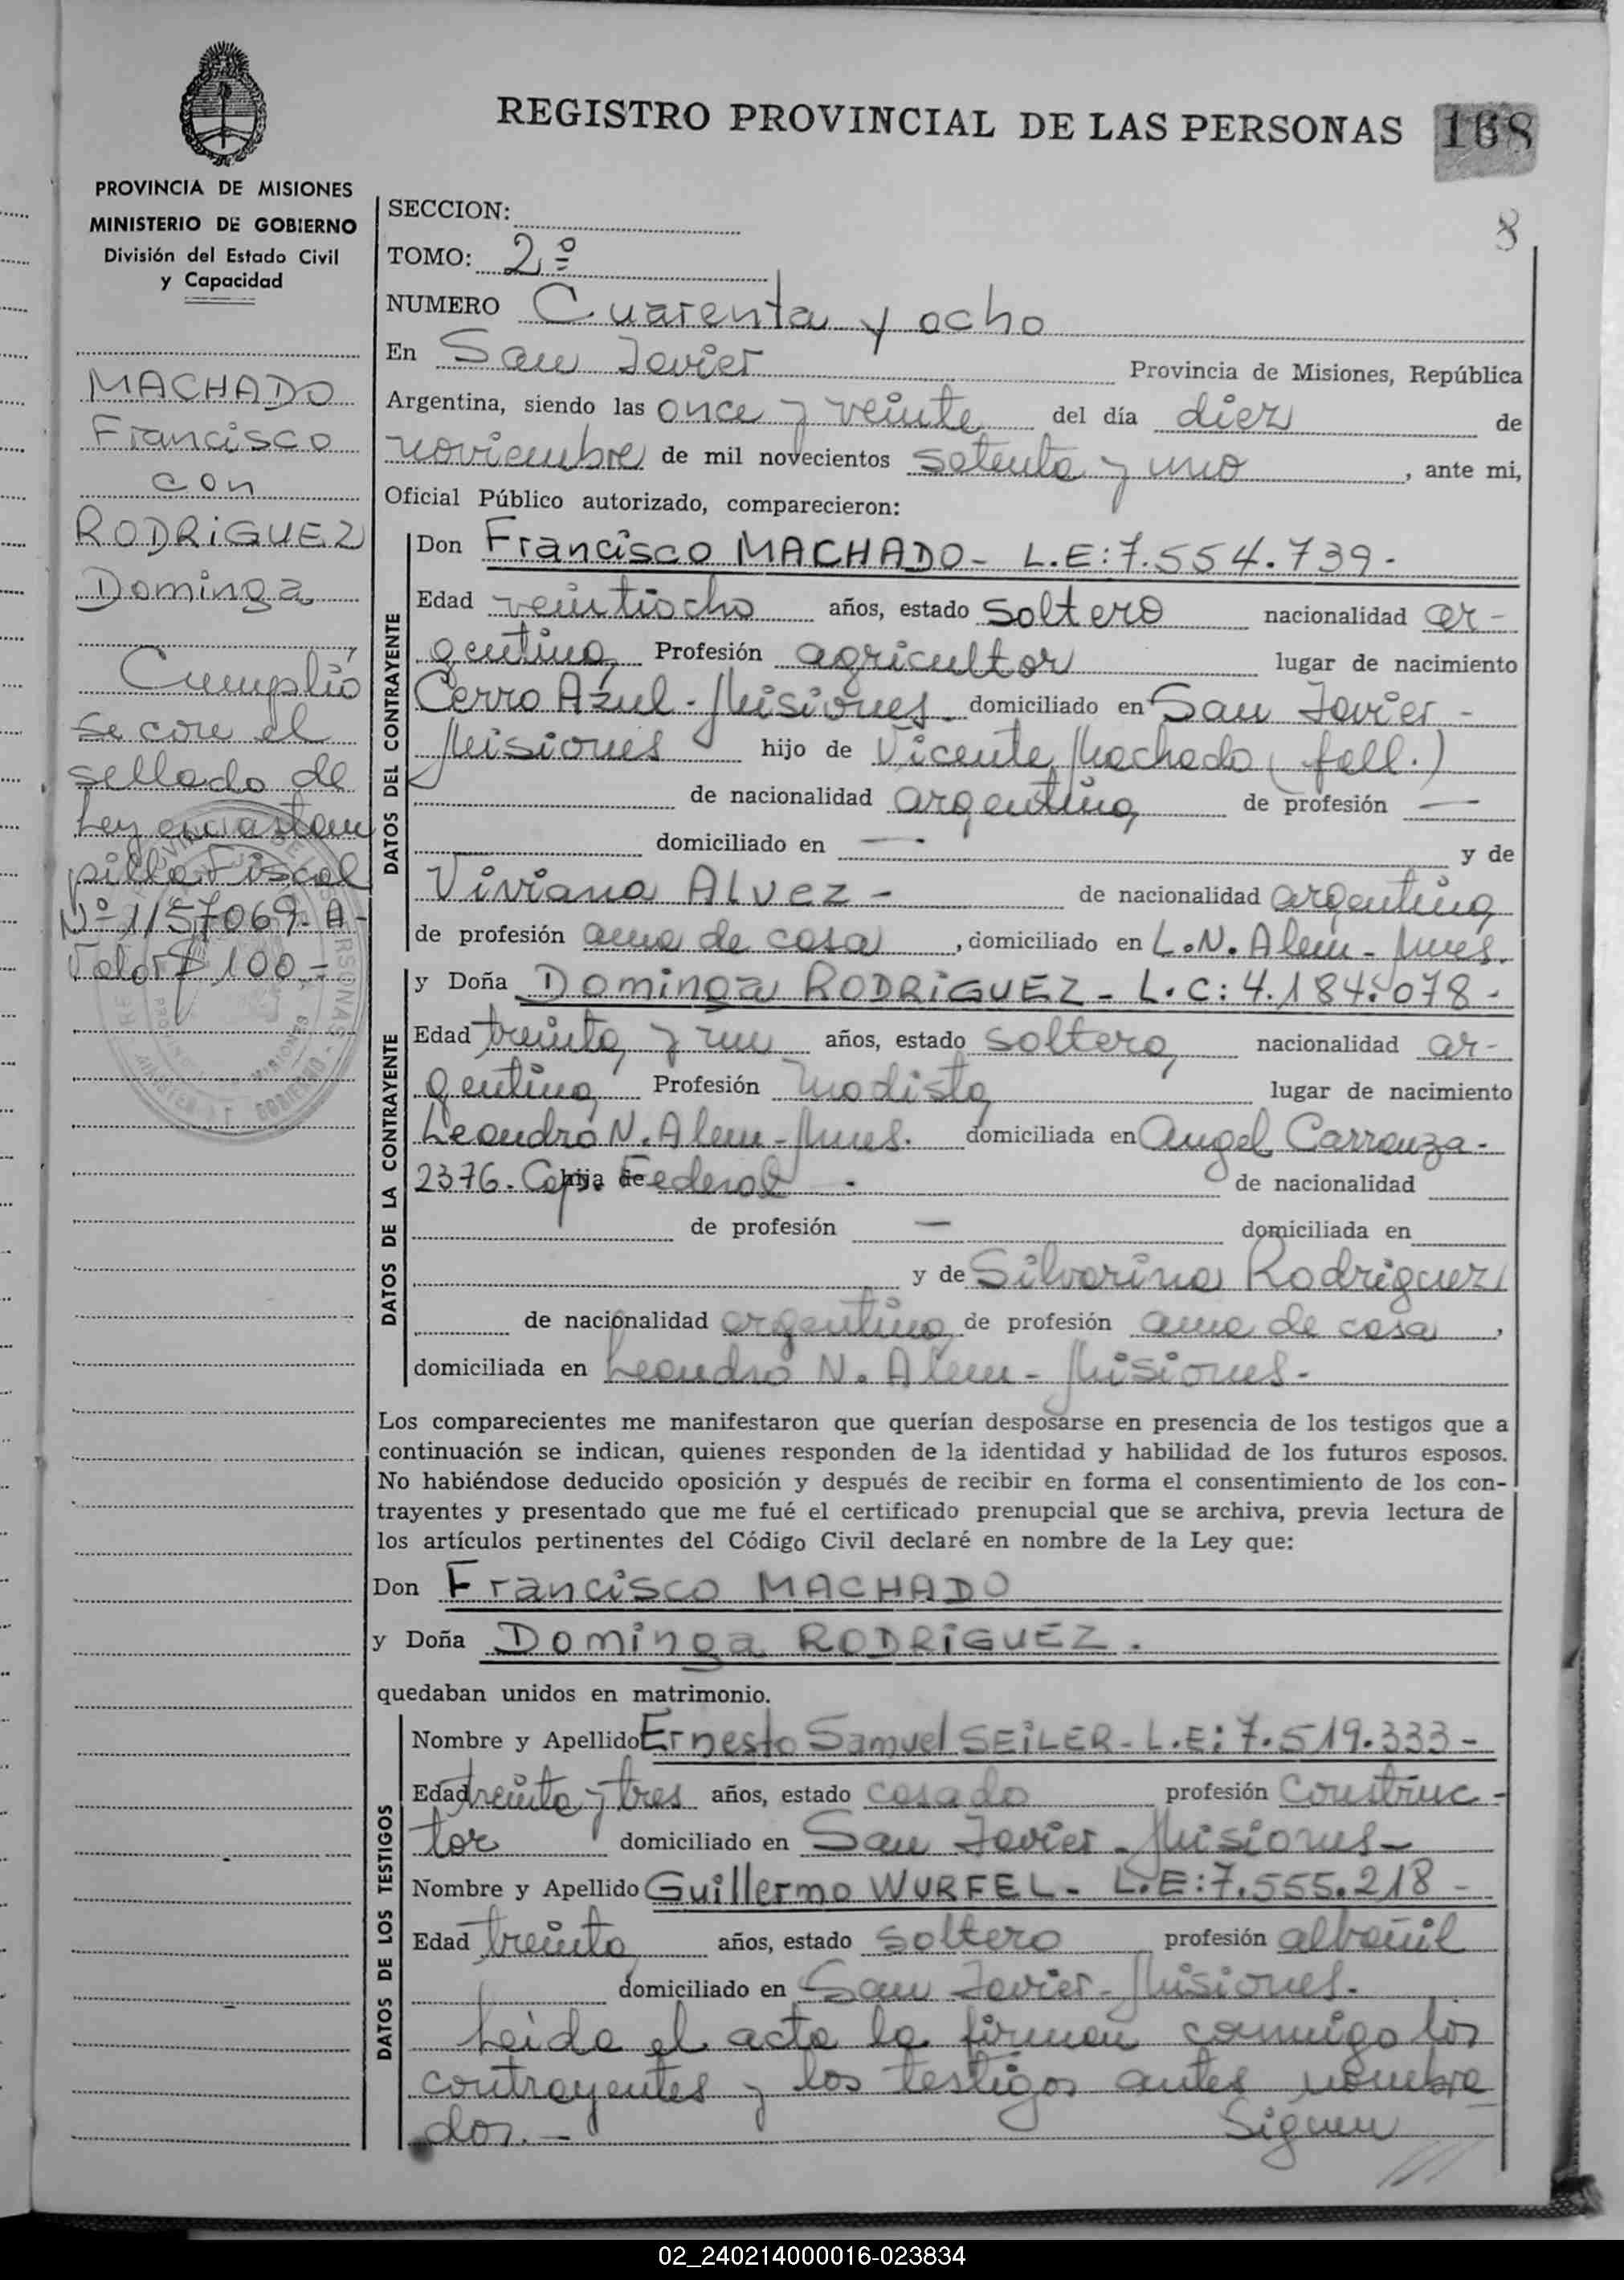 REGISTRO PROVINCIAL DE LAS PERSONAS 168
8
PROVINCIA DE MISIONES
MINISTERIO DE GOBIERNO
División del Estado Civil
y Capacidad
MACHADO
Francisco
con
RODRIGUEZ
Dominga
Cumplió
se con el
sellado de
Ley en estam
pilla Fiscal
Nº 1157069-A-
Valor $ 100-
SECCION:
TOMO: 2º
NUMERO Cuarenta y ocho
En San Javier Provincia de Misiones, República
Argentina, siendo las once y veinte del día diez de
noviembre de mil novecientos setenta y uno, ante mi,
Oficial Público autorizado, comparecieron:
DATOS DEL CONTRAYENTE
Don Francisco MACHADO- L.E:7.554.739-
Edad veintiocho años, estado soltero nacionalidad ar-
gentina, Profesión agricultor lugar de nacimiento
Cerro Azul-Misiones- domiciliado en San Javier-
Misiones hijo de Vicente Machado (fall.)
de nacionalidad argentina de profesión —
domiciliado en — y de
Viviana ALVEZ- de nacionalidad argentina
de profesión ama de casa, domiciliado en L.N. Alem-Mnes.
DATOS DE LA CONTRAYENTE
y Doña Dominga RODRIGUEZ- L.C:4.184.078-
Edad treinta y un años, estado soltera, nacionalidad ar-
gentina Profesión modista lugar de nacimiento
Leandro N. Alem-Mnes. domiciliada en Angel Carranza-
2376-Cap. Federal hija de - de nacionalidad
de profesión — domiciliada en
y de Silvarina Rodriguez
de nacionalidad argentina, de profesión ama de casa,
domiciliada en Leandro N. Alem-Misiones-
Los comparecientes me manifestaron que querían desposarse en presencia de los testigos que a
continuación se indican, quienes responden de la identidad y habilidad de los futuros esposos.
No habiéndose deducido oposición y después de recibir en forma el consentimiento de los con-
trayentes y presentado que me fué el certificado prenupcial que se archiva, previa lectura de
los artículos pertinentes del Código Civil declaré en nombre de la Ley que:
Don Francisco MACHADO
y Doña Dominga RODRIGUEZ.
quedaban unidos en matrimonio.
DATOS DE LOS TESTIGOS
Nombre y Apellido Ernesto Samuel SEILER-L.E:7.519.333-
Edad treinta y tres años, estado casado profesión Construc-
tor domiciliado en San Javier-Misiones-
Nombre y Apellido Guillermo WURFEL- L.E:7.555.218-
Edad treinta años, estado soltero profesión albañil
domiciliado en San Javier-Misiones.
Leida el acta la firman conmigo los
contrayentes y los testigos antes nombra
dos.- Siguen
02_240214000016-023834